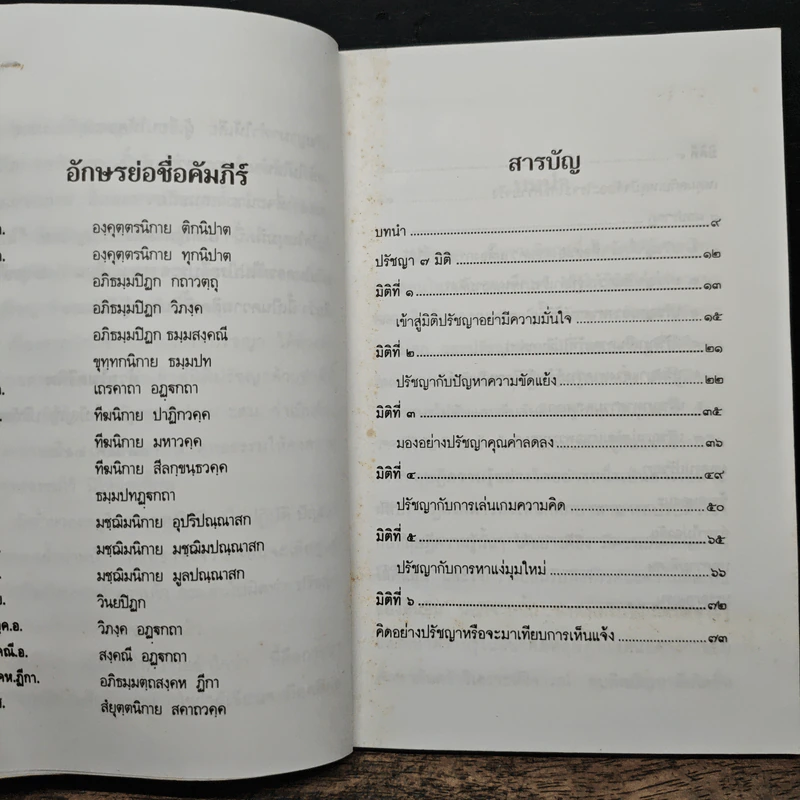 อักษรย่อชื่อคัมภีร์
องฺคุตฺตรนิกาย ติกนิปาต
องฺคุตฺตรนิกาย ทุกนิปาต
อภิธมฺมปิฎก กถาวตฺถุ
อภิธมฺมปิฎก วิภงฺค
อภิธมฺมปิฎก ธมฺมสงฺคณี
ขุทฺทกนิกาย ธมฺมปท
เถรคาถา อฏฺฐกถา
ทีฆนิกาย ปาฏิกวคฺค
ทีฆนิกาย มหาวคฺค
ทีฆนิกาย สีลกฺขนฺธวคฺค
ธมฺมปทฏฺฐกถา
มชฺฌิมนิกาย อุปริปณฺณาสก
มชฺฌิมนิกาย มชฺฌิมปณฺณาสก
มชฺฌิมนิกาย มูลปณฺณาสก
วินยปิฎก
ค.อ. วิภงฺค อฏฺฐกถา
คณี.อ. สงฺคณี อฏฺฐกถา
คห.ฎีกา. อภิธมฺมตฺถสงฺคห ฎีกา
สํยุตฺตนิกาย สคาถวคฺค
สารบัญ
บทนำ ๙
ปรัชญา ๗ มิติ ๑๒
มิติที่ ๑ ๑๓
เข้าสู่มิติปรัชญาอย่ามีความมั่นใจ ๑๕
มิติที่ ๒ ๒๑
ปรัชญากับปัญหาความขัดแย้ง ๒๒
มิติที่ ๓ ๓๕
มองอย่างปรัชญาคุณค่าลดลง ๓๖
มิติที่ ๔ ๔๙
ปรัชญากับการเล่นเกมความคิด ๕๐
มิติที่ ๕ ๖๕
ปรัชญากับการหาแง่มุมใหม่ ๖๖
มิติที่ ๖ ๗๒
คิดอย่างปรัชญาหรือจะมาเทียบการเห็นแจ้ง ๗๓